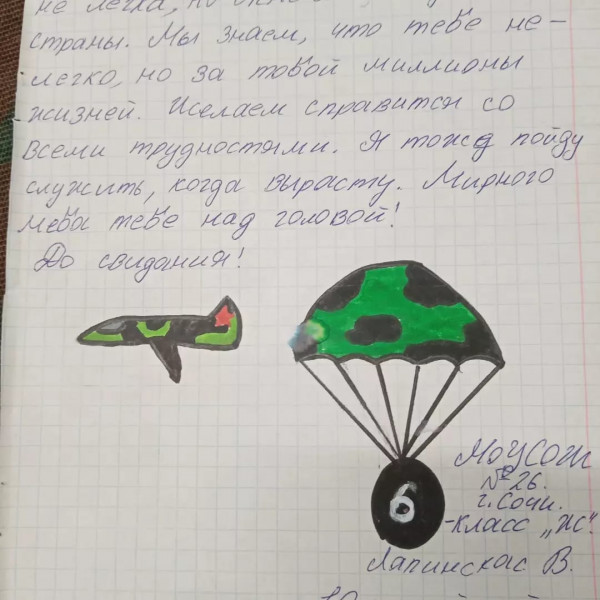 не легка, но
страны. Мы знаем, что тебе не-
легко, но за тобой миллионы
жизней. Желаем справится со
всеми трудностями. Я тоже пойду
служить, когда вырасту. Мирного
неба тебе над головой!
До свидания!
МОУСОШ
№26.
г. Сочи.
6 -класс „Ж“.
Лапинскас В.